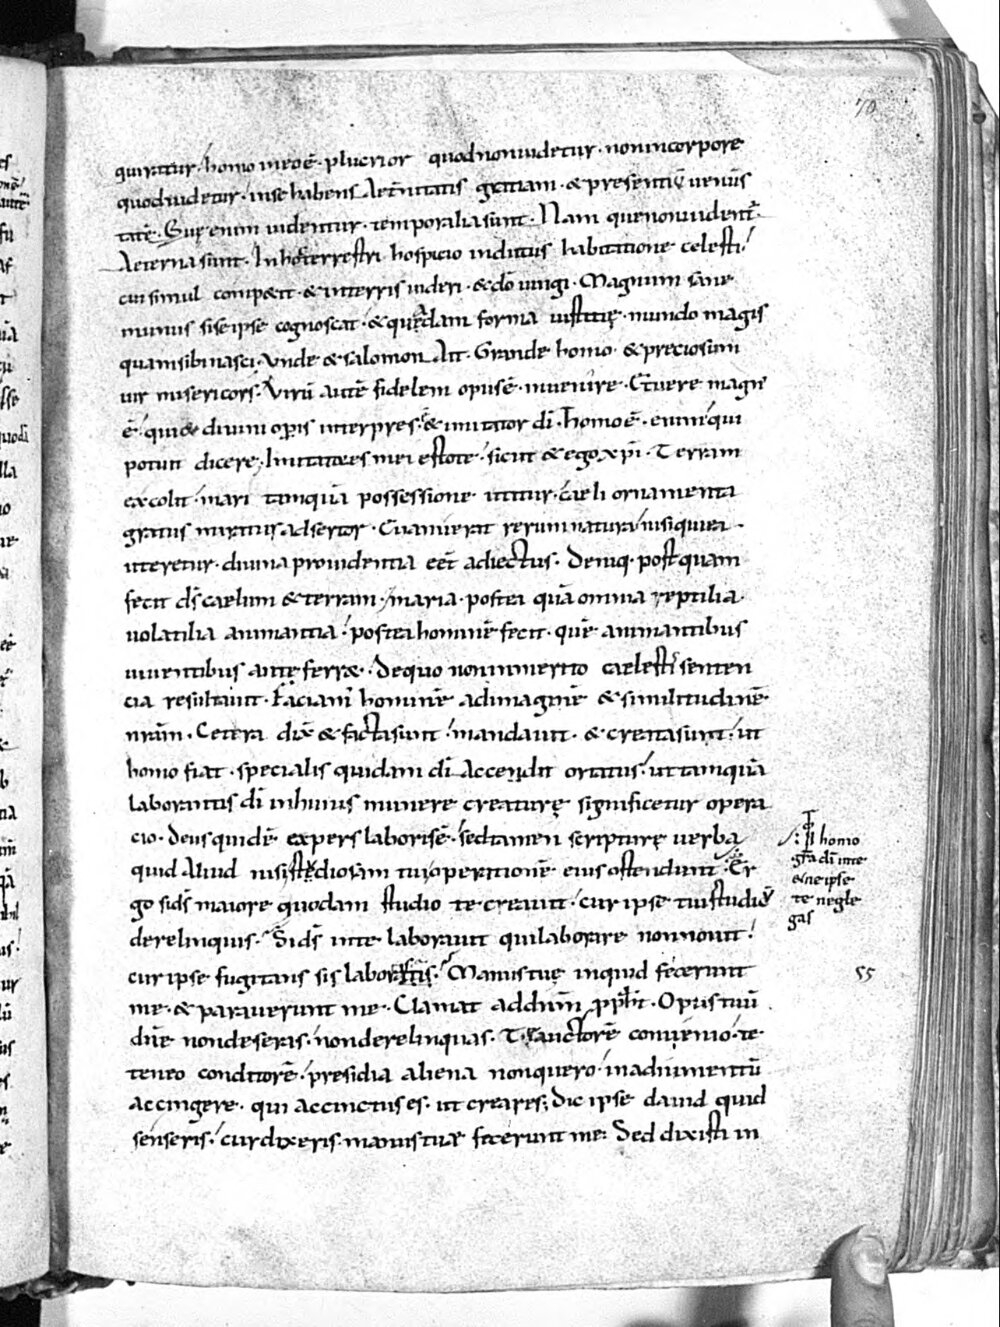 70
quiratur. homo meoē. pluerior quod non uidetur. non in corpore
quod uidetur. in se habens Aetnitatis gratiam. & presentię uenus
tatē. Suę enim uidentur. temporalia sunt. Nam quę non uident̄.
Aeterna sunt. In hōc terrestri hospicio inditus habitatione celesti.
cui simul compaetit. & in terris uideri. & dō iungi. Magnum sane
munus si se ipse cognoscat. & quędam forma iustitię. mundo magis
quam sibi nasci. Vnde & salomon Ait. Grande homo. & preciosum
uir misericors. Virū autē fidelem opus ē. inuenire. Et uere magn'
ē. qui diuini opis interpres. & imitator dī. Homo ē. enim qui
potuit dicere. Imitatores mei estote. sicut & ego xp̄i. Terram
excolit. mari tanquā possessione utitur. caeli ornamenta
gratus miratur adsertor. Cuanuerat rerum natura. nisi quia
uteretur. diuina prouidentia eēt adiectus. Deniq. postquam
fecit dś caelum & terram. maria. postea quā omnia reptilia.
uolatilia animantia. postea hominē fecit. quē animantibus
uiuentibus antę ferræ. De quo non inmerito caelesti senten
cia resultauit. Faciam' hominē ad imaginē & similitudinē
nr̄am. Cetera dix̄ & facta sunt. mandauit. & creata sunt. ut
homo fiat. specialis quidam dī Accendit ortatus. ut tamquā
laborantis dī in huius munere creaturę significetur opera
cio. Deus quidē expers laboris ē. sed tamen scripturę uerba
quid Aliud nisi studiosam tui operationē eius ostendunt. Er
go si dś maiore quodam studio te creauit. cur ipse tui studiū
derelinquis. Si dś in te laborauit qui laborare non nouit.
cur ipse fugitans sis laboris. Manus tuę inquid fecerunt
me. & parauerunt me. Clamat ad dnm̄ pph̄t. Opus tuū
dn̄e non deseras. non derelinquas. T sanctorē conuenio. te
teneo conditorē. presidia aliena non quero. in adiumentū
accingere. qui accinctus es. ut creares. Dic ipse dauid quid
senseris. cur dixeris. manus tuae fecerunt me. Sed dixisti in
homo
gra dī in te
& ne ipse
te negle
gas
55